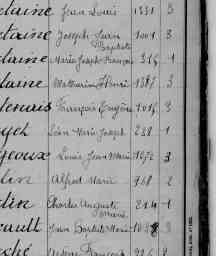 taine Jean Louis 1331 3
taine Joseph Jean 1001 3
Baptiste
taine Marie Joseph François 346 1
taine Mathurin Henri 1387 3
lenais François Eugène 1016 3
Léon Marie Joseph 238 1
geoux Louis Jean Marie 1072 3
lin Alfred Marie 968 2
din Charles Auguste 214 1
Marie
cault Jean Baptiste Marie 1038 3
ché François